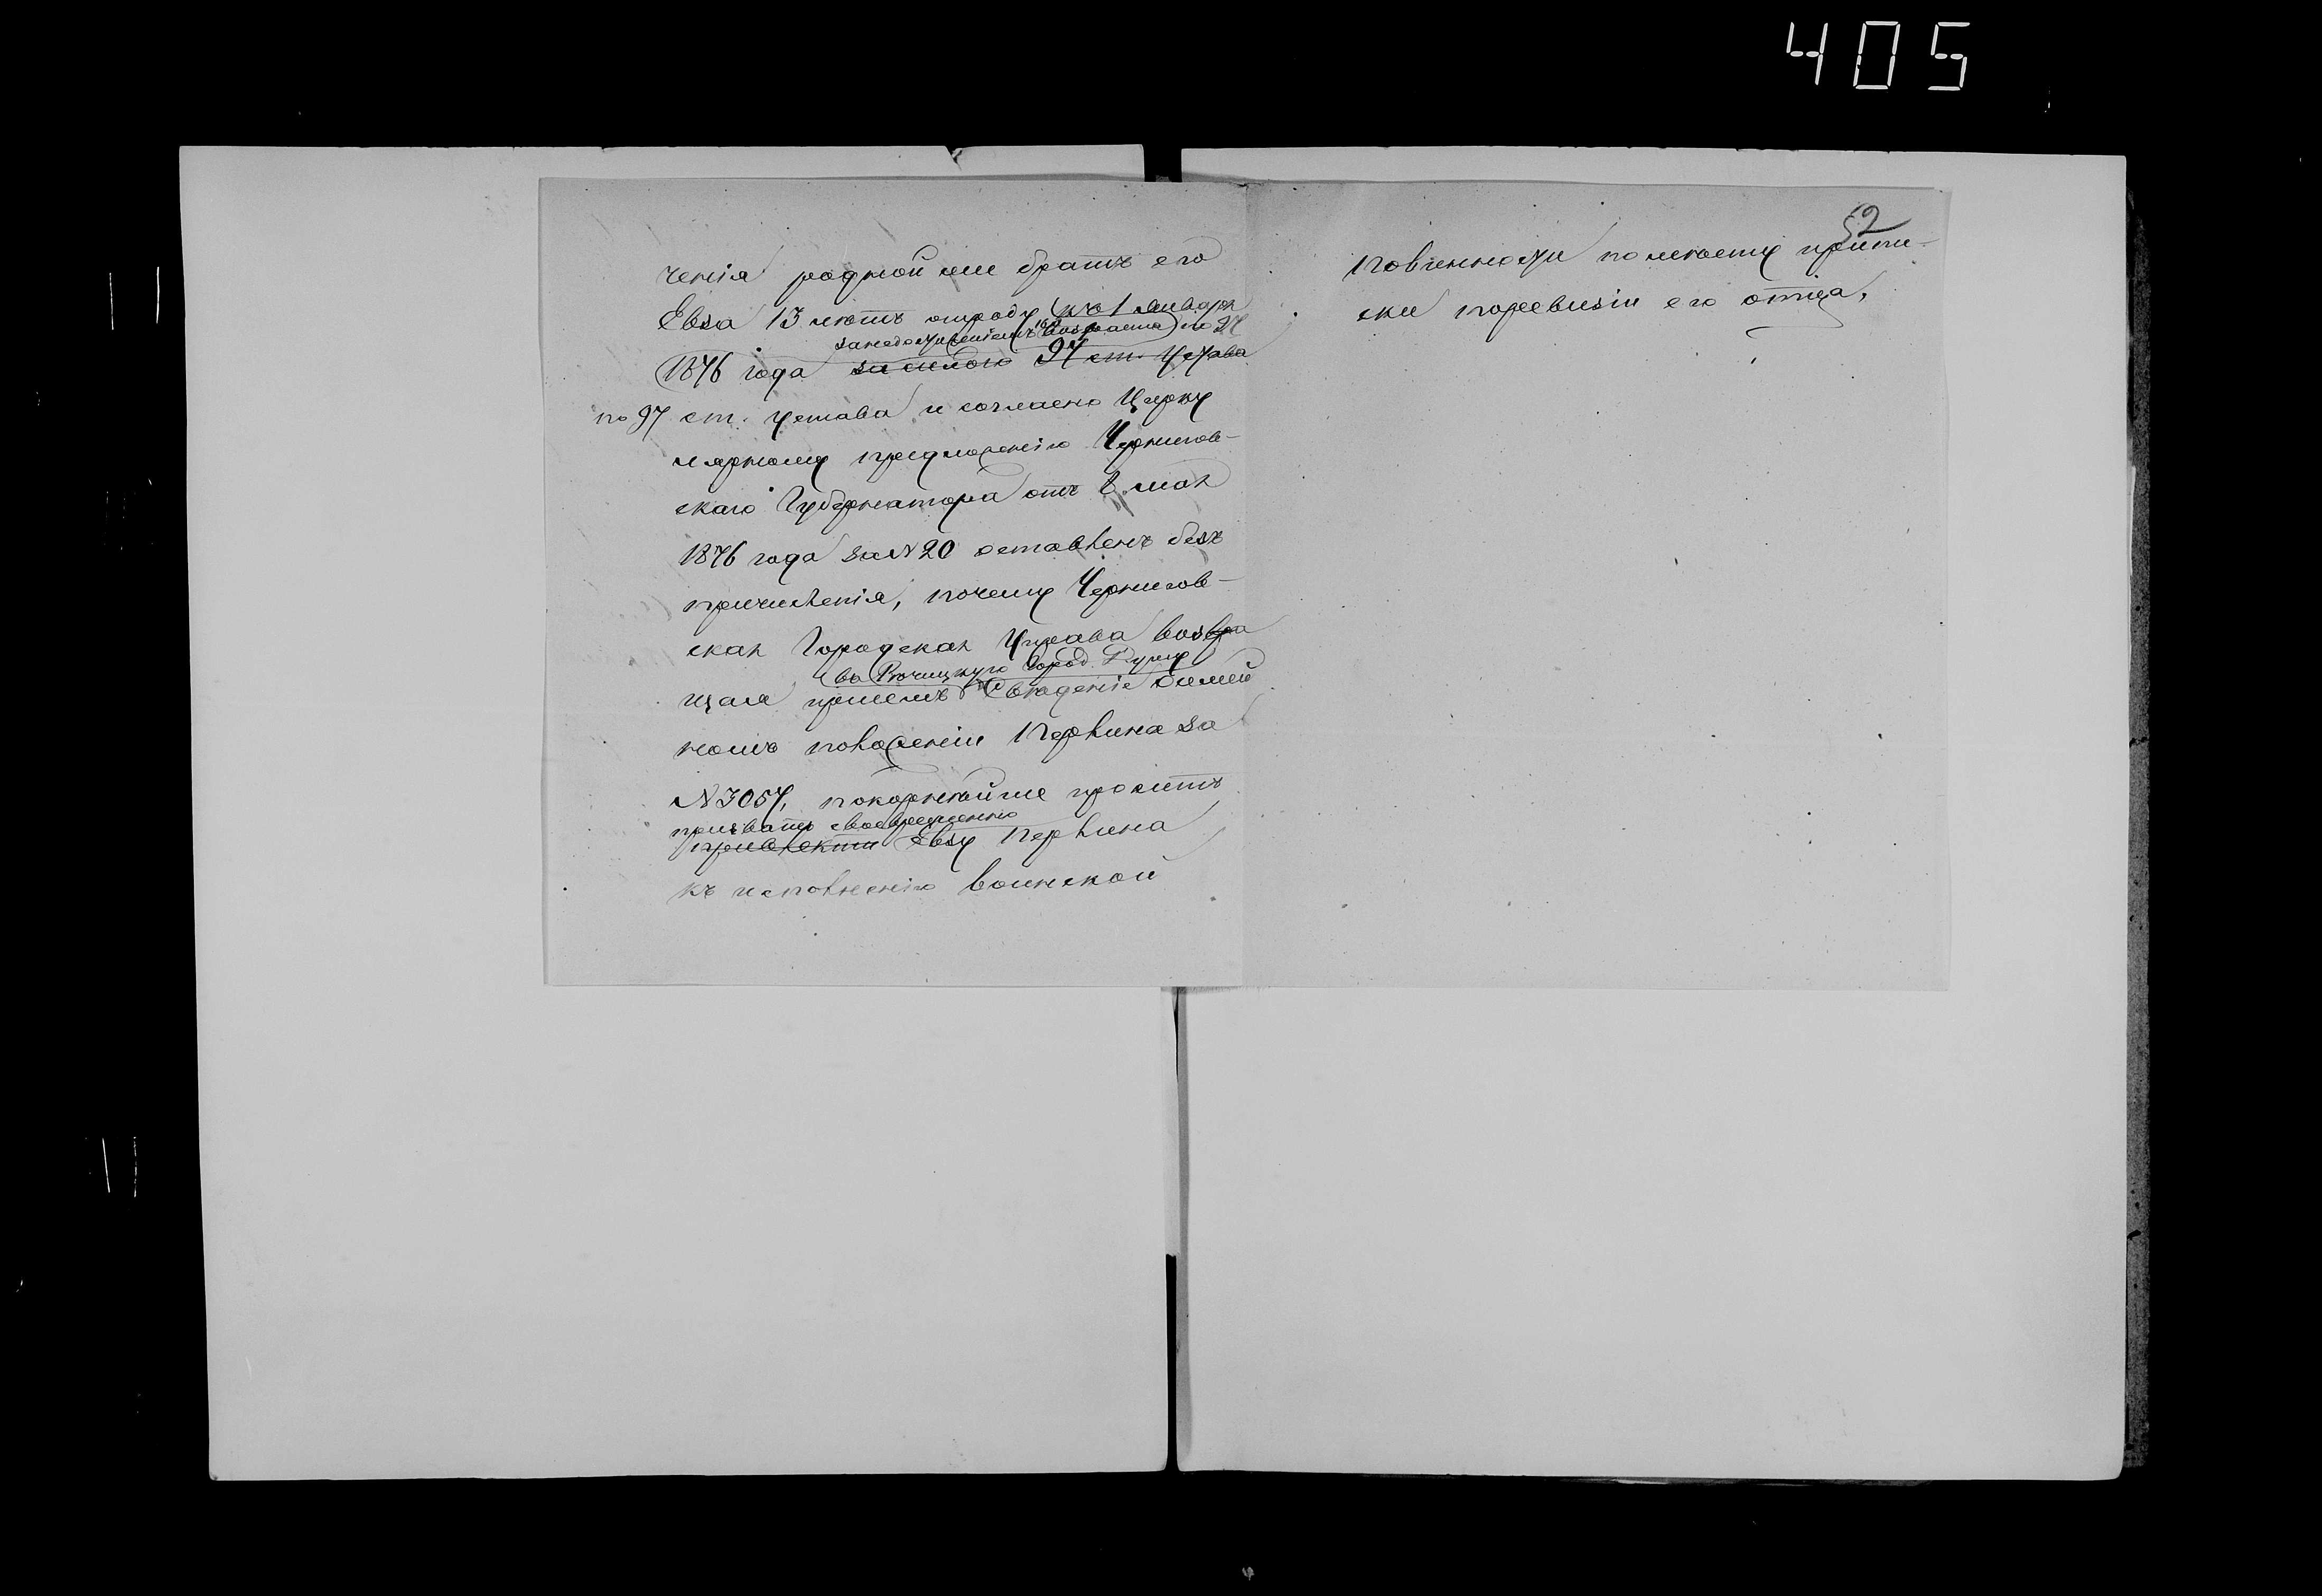 405
ченія родной же братъ его
Евза 13 лѣтъ отроду (къ 1 Января
за недостиженіемъ 16 л возраста) по 97
1876 года за силою 97 ст. Устава
по 97 ст. Устава и согласно Цирку
лярному предложенію Чернигов-
скаго Губернатора отъ 8 мая
1876 года за № 20 оставленъ безъ
причисленія, почему Чернигов-
ская Городская Управа возвра
въ Рѣчицкую Город. Думу
щая при семъ свѣдѣніе о семей
номъ положеніи Перлина за
№ 3057, покорнѣйше проситъ
призвать своевременно
привлекти Евзу Перлина
къ исполненію воинской
52
повинности по мѣсту припи-
ски по ревизіи его отца.